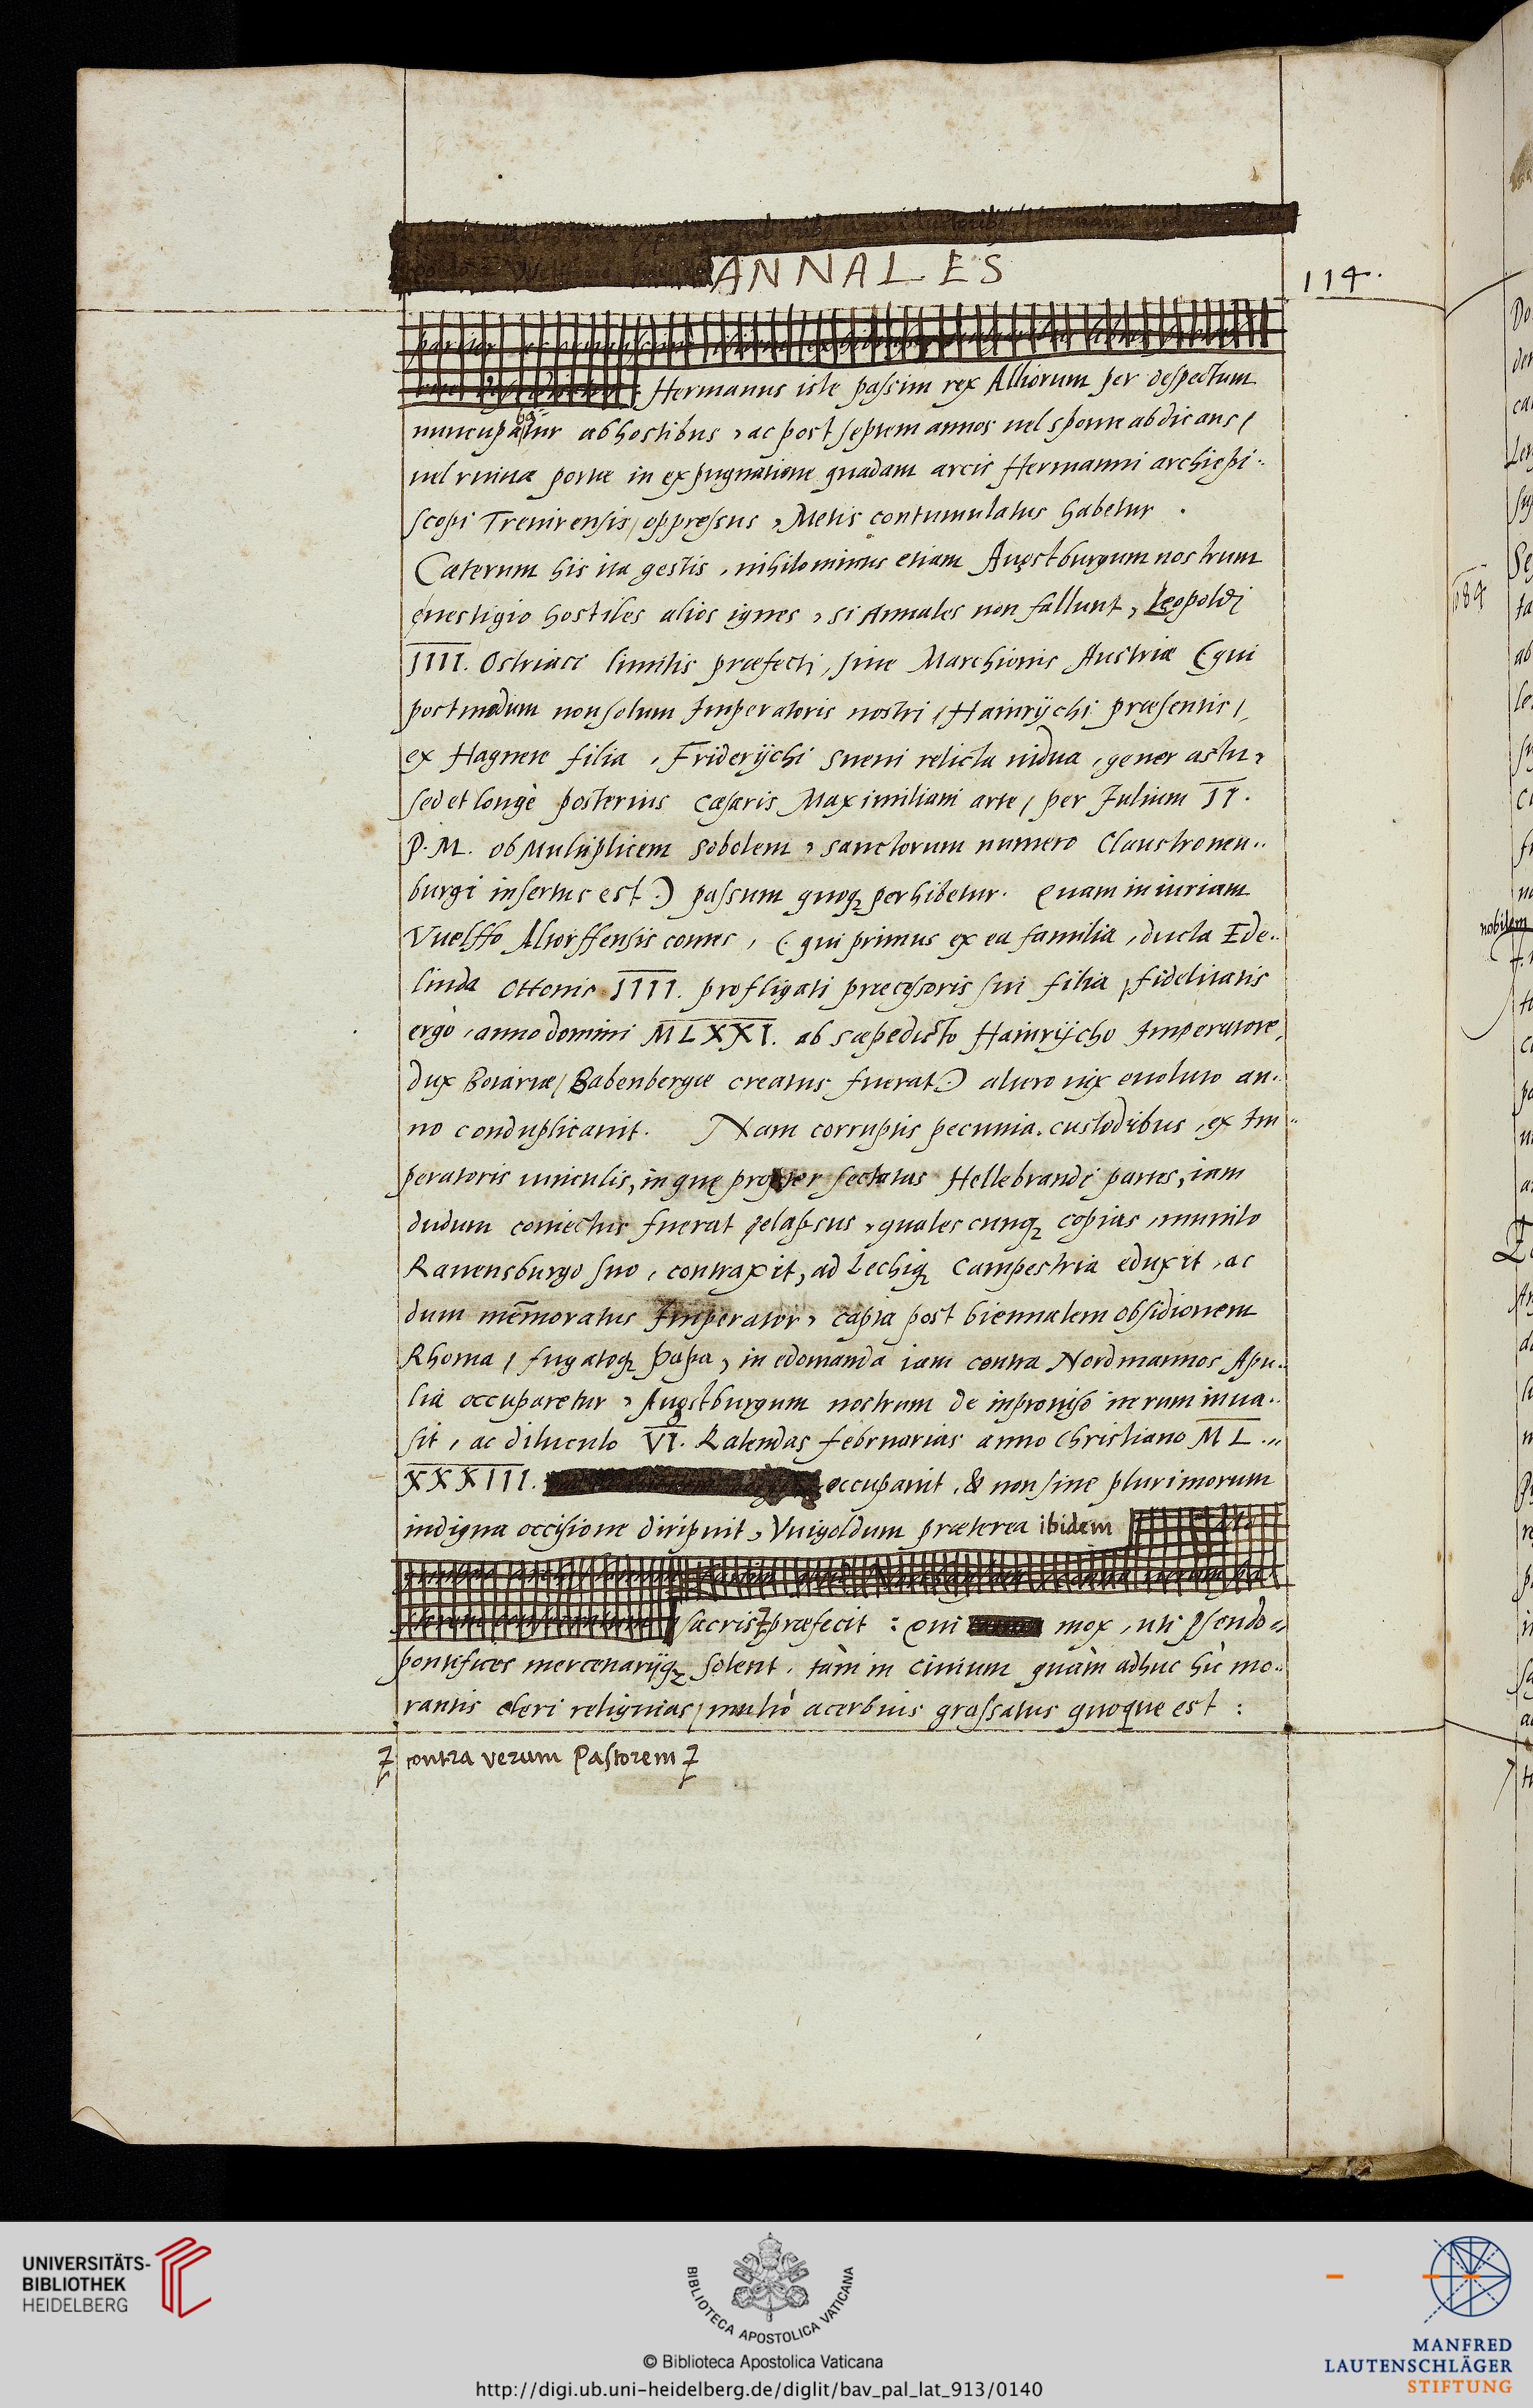 ANNALES
114.
Hermanus iste passim rex Alliorum per despectum
nuncupabatur ab hostibus, ac post septem annos uel sponte abdicans /
uel ruinæ portæ in expugnatione quadam arcis Hermanni archiepi..
scopi Treuirensis / oppressus, Metis contumulatus habetur .
Cæterum his ita gestis, nihilominus etiam Augstburgum nostrum
e uestigio hostiles alios ignes, si Annales non fallunt, Leopoldi
IIII. Ostriaci limitis præfecti, siue Marchionis Austriæ (qui
postmodum non solum Imperatoris nostri / Hainrÿchi præsentis /
ex Hagnete filia, Friderÿchi Sueui relicta uidua, gener astu,
sed et longè posterius cæsaris Maximiliani arte / per Iulium II.
P. M. ob multiplicem sobolem, sanctorum numero Claustroneu..
burgi insertus est) passum quoq perhibetur. Quam iniuriam
Vuelffo Altorffensis comes, (qui primus ex ea familia, ducta Ede..
linda Ottonis IIII. profligati præcessoris sui filia, fidelitatis
ergò, anno domini MLXXI. ab sæpedicto Hainrÿcho Imperatore,
dux Boiariæ / Babenbergæ creatus fuerat) altero uix euoluto an..
no conduplicauit. Nam corruptis pecunia custodibus, ex Im..
peratoris uinculis, in quę propter sectatas Hellebrandi partes, iam
dudum coniectus fuerat elapsus, qualescunq copias, munito
Rauensburgo suo, contraxit, ad Lechiq campestria eduxit, ac
dum mēmoratus Imperator, capta post biennalem obsidionem
Rhoma / fugatoq papa, in edomanda iam contra Nordmannos Apu..
lia occuparetur, Augstburgum nostrum de inprouiso iterum inua..
sit, ac diluculo VI. Kalendas februarias anno Christiano ML..
XXXIII. occupauit, & non sine plurimorum
indigna occisione diripuit, Vuigoldum præterea ibidem
sacris præfecit : Qui mox, uti pseudo=
pontifices mercenarÿq solent, tàm in ciuium quàm adhuc hìc mo..
rantis cleri reliquias / multò acerbius grassatus quoque est :
contra verum Pastorem
1084
nobilem
UNIVERSITÄTS-
BIBLIOTHEK
HEIDELBERG
BIBLIOTECA APOSTOLICA VATICANA
© Biblioteca Apostolica Vaticana
http://digi.ub.uni-heidelberg.de/diglit/bav_pal_lat_913/0140
MANFRED
LAUTENSCHLÄGER
STIFTUNG